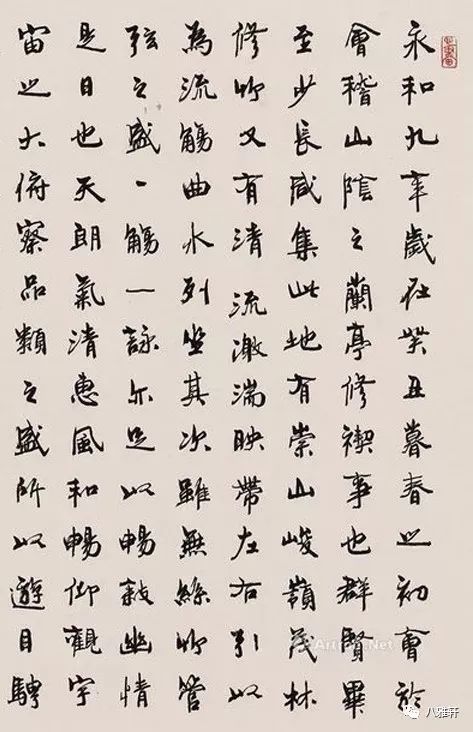 永和九年歲在癸丑暮春之初會於
會稽山陰之蘭亭修禊事也群賢畢
至少長咸集此地有崇山峻嶺茂林
修竹又有清流激湍映帶左右引以
為流觴曲水列坐其次雖無絲竹管
弦之盛一觴一詠亦足以暢敘幽情
是日也天朗氣清惠風和暢仰觀宇
宙之大俯察品類之盛所以遊目騁
Artron.Net
八雅轩